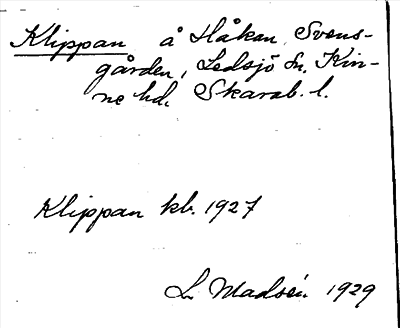 Klippan å Håkan Svens-
gården, Ledsjö sn, Kin-
ne hd. Skarab. l.
Klippan kb. 1927
L. Madsén 1929